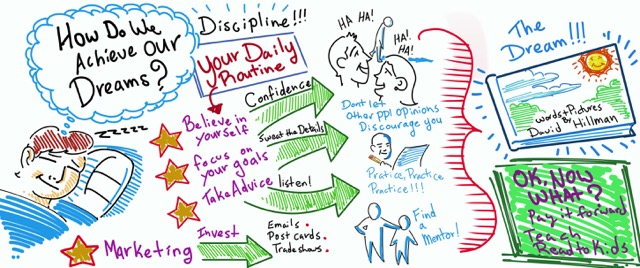 How Do We
Achieve Our
Dreams?
zzzzz
Discipline!!!
Your Daily
Routine
Believe in
yourself
Focus on
your goals
Take Advice
Marketing
Confidence
Sweat the Details
listen!
Invest
Emails.
Post cards.
Tradeshows.
HA HA!
HA!
HA!
Dont let
other ppl opinions
Discourage you
Pratice, Practice
Practice!!!
Find
a Mentor!
The
Dream!!!
words+Pictures
By
David Hillman
OK, NOW
WHAT?
Pay it forward
Teach
Read to Kids